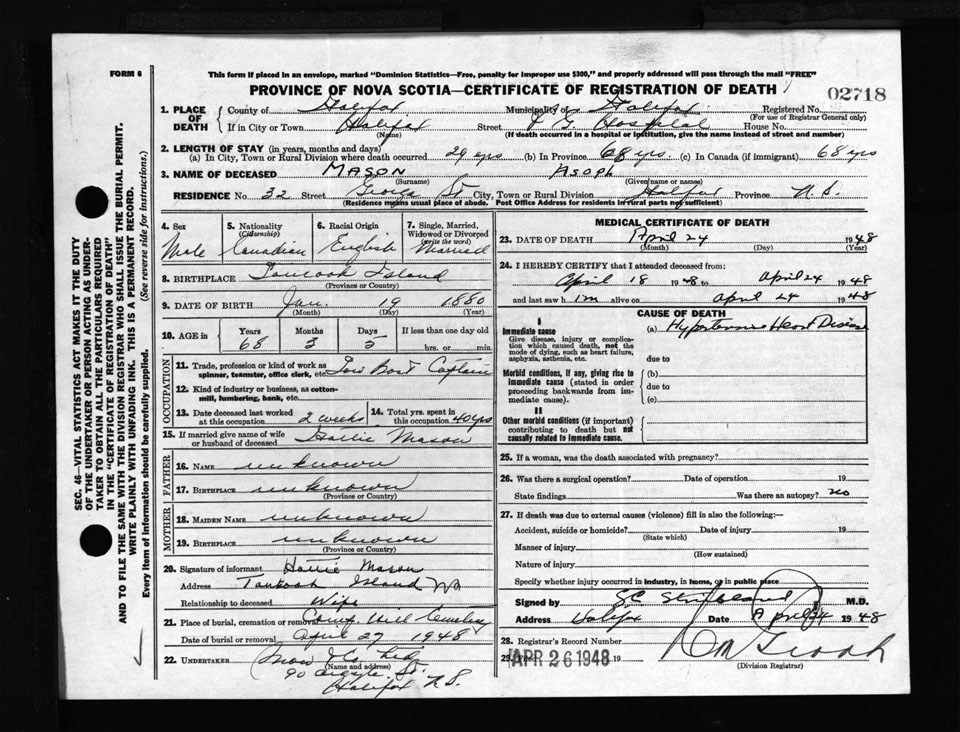 FORM 6
This form if placed in an envelope, marked "Dominion Statistics—Free, penalty for improper use $300," and properly addressed will pass through the mail "FREE"
PROVINCE OF NOVA SCOTIA—CERTIFICATE OF REGISTRATION OF DEATH
02718
1. PLACE OF DEATH County of Halifax Municipality of Halifax Registered No.
(For use of Registrar General only)
If in City or Town Halifax Street V G Hospital House No.
(Name) (If death occurred in a hospital or institution, give the name instead of street and number)
2. LENGTH OF STAY (in years, months and days)
(a) In City, Town or Rural Division where death occurred 29 yrs (b) In Province 68 yrs. (c) In Canada (if immigrant) 68 yrs
3. NAME OF DECEASED MASON ASOPH
(Surname) (Given name or names)
RESIDENCE No. 32 Street George St City, Town or Rural Division Halifax Province N.S.
(Residence means usual place of abode. Post Office Address for residents in rural parts not sufficient)
4. Sex Male
5. Nationality (Citizenship) Canadian
6. Racial Origin English
7. Single, Married, Widowed or Divorced (write the word) Married
8. BIRTHPLACE Tancook Island
(Province or Country)
9. DATE OF BIRTH Jan. 19 1880
(Month) (Day) (Year)
10. AGE in Years Months Days If less than one day old
68 3 5 hrs. or min.
OCCUPATION
11. Trade, profession or kind of work as spinner, teamster, office clerk, etc. Tow Boat Captain
12. Kind of industry or business, as cotton-mill, lumbering, bank, etc.
13. Date deceased last worked at this occupation 2 weeks
14. Total yrs. spent in this occupation 40 yrs
15. If married give name of wife or husband of deceased Hattie Mason
FATHER
16. NAME unknown
17. BIRTHPLACE unknown
(Province or Country)
MOTHER
18. MAIDEN NAME unknown
19. BIRTHPLACE unknown
(Province or Country)
20. Signature of informant Hattie Mason
Address Tankook Island NS
Relationship to deceased Wife
21. Place of burial, cremation or removal Camp Hill Cemetery
Date of burial or removal April 27 1948
22. UNDERTAKER Snow & Co. Ltd
(Name and address)
90 Argyle St.
Halifax N.S.
MEDICAL CERTIFICATE OF DEATH
23. DATE OF DEATH April 24 1948
(Month) (Day) (Year)
24. I HEREBY CERTIFY that I attended deceased from:
April 18 1948 to April 24 1948
and last saw him alive on April 24 1948
CAUSE OF DEATH
I
Immediate cause (a) Hypertensive Heart Disease
Give disease, injury or complication which caused death, not the mode of dying, such as heart failure, asphyxia, asthenia, etc. due to
Morbid conditions, if any, giving rise to immediate cause (stated in order proceeding backwards from immediate cause). (b) due to (c)
II
Other morbid conditions (if important) contributing to death but not causally related to immediate cause.
25. If a woman, was the death associated with pregnancy?
26. Was there a surgical operation? Date of operation 19
State findings Was there an autopsy? no
27. If death was due to external causes (violence) fill in also the following:—
Accident, suicide or homicide? Date of injury 19
(State which)
Manner of injury
(How sustained)
Nature of injury
Specify whether injury occurred in industry, in home, or in public place
Signed by M.D.
Address Halifax Date April 24 1948
28. Registrar's Record Number
29. APR 26 1948 19
(Division Registrar)
SEC. 46—VITAL STATISTICS ACT MAKES IT THE DUTY
OF THE UNDERTAKER OR PERSON ACTING AS UNDER-
TAKER TO OBTAIN ALL THE PARTICULARS REQUIRED
IN THE "CERTIFICATE OF REGISTRATION OF DEATH"
AND TO FILE THE SAME WITH THE DIVISION REGISTRAR WHO SHALL ISSUE THE BURIAL PERMIT.
WRITE PLAINLY WITH UNFADING INK. THIS IS A PERMANENT RECORD.
Every item of information should be carefully supplied. (See reverse side for instructions.)